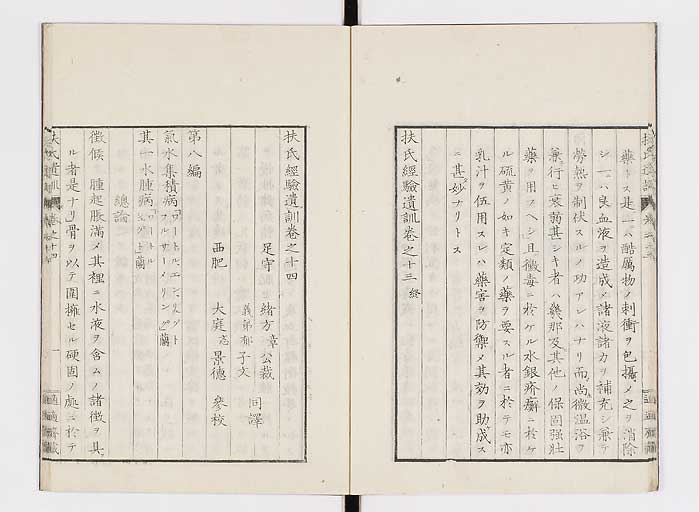 藥トス是一ハ酷厲物ノ刺衝ヲ包攝メ之ヲ消除
シ一ハ良血液ヲ造成メ諸液諸力ヲ補充シ兼テ
勞熱ヲ制伏スルノ功アレハナリ而尚微温浴ヲ
兼行ヒ衰弱甚シキ者ハ幾那及其他ノ保固強壯
藥ヲ用スヘシ且黴毒ニ於ケル水銀疥癬ニ於ケ
ル硫黄ノ如キ定類ノ藥ヲ要スル者ニ於テモ亦
乳汁ヲ伍用スレハ藥害ヲ防禦メ其効ヲ助成ス
ニ甚妙ナリトス
扶氏經驗遺訓卷之十三 終
扶氏經驗遺訓卷之十四
足守 緒方章公裁 同譯
義弟郁子文
西肥 大庭忞景德 參校
第八編
氣水集積病
其一水腫病
總論
徵候 腫起脹滿メ其裡ニ水液ヲ含ムノ諸徵ヲ具
ル者是ナリ骨ヲ以テ圍擁セル硬固ノ處ニ於テ
扶氏遺訓 卷之十四
一